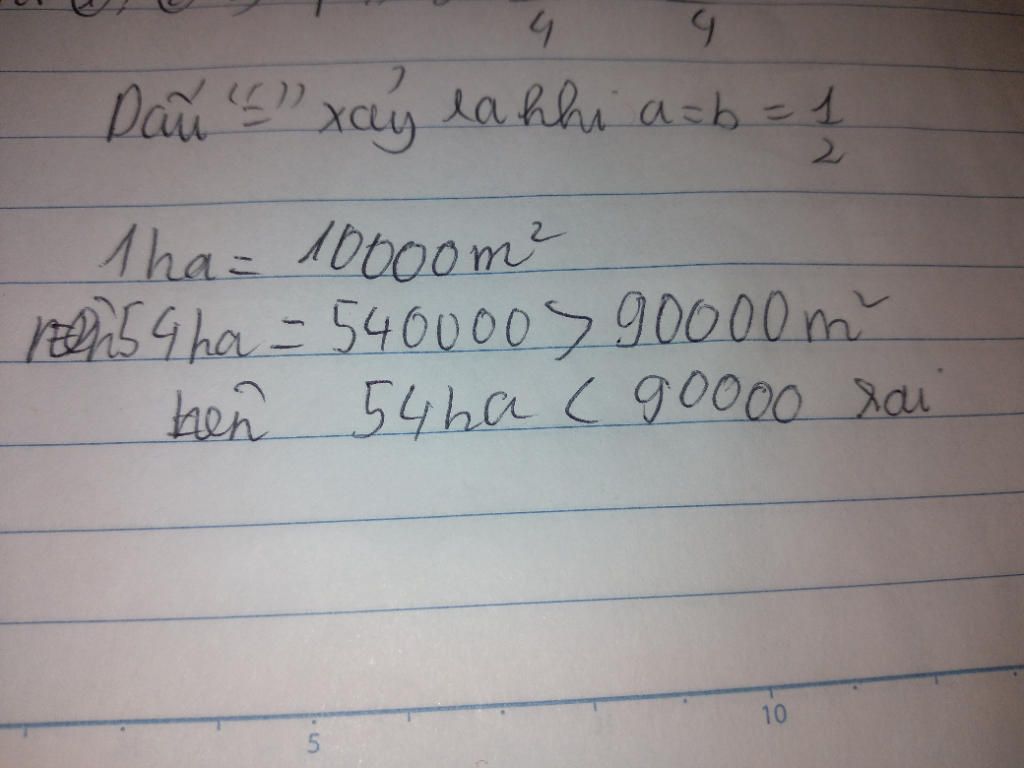 4 4
Dấu "=" xảy ra khi a = b = 1/2
1 ha = 10000 m²
54 ha = 540000 > 90000 m²
nên 54 ha < 90000 sai
5 10